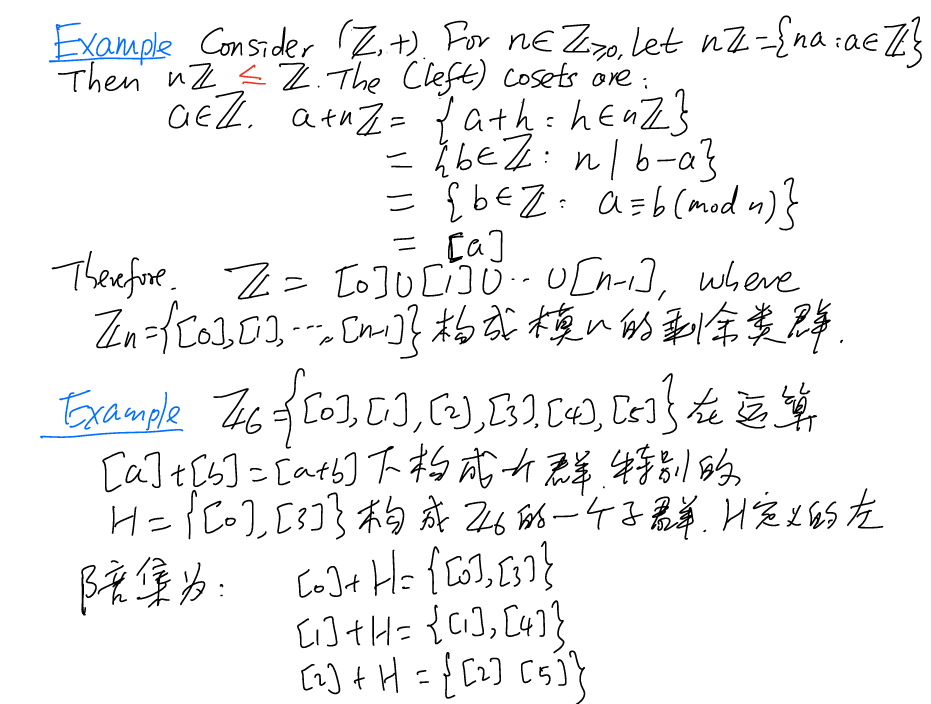 Example Consider (ℤ,+). For n∈ℤ≥0, Let nℤ={na:a∈ℤ}
Then nℤ ≤ ℤ. The (left) cosets are:
a∈ℤ. a+nℤ = {a+h : h∈nℤ}
= {b∈ℤ: n | b-a}
= {b∈ℤ: a≡b(mod n)}
= [a]
Therefore. ℤ = [0]∪[1]∪…∪[n-1], where
ℤn={[0],[1],…,[n-1]}构成模n的剩余类群.
Example ℤ6={[0],[1],[2],[3],[4],[5]}在运算
[a]+[b]=[a+b]下构成个群.特别的
H={[0],[3]}构成ℤ6的一个子群.H定义的左
陪集为:
[0]+H={[0],[3]}
[1]+H={[1],[4]}
[2]+H={[2] [5]}